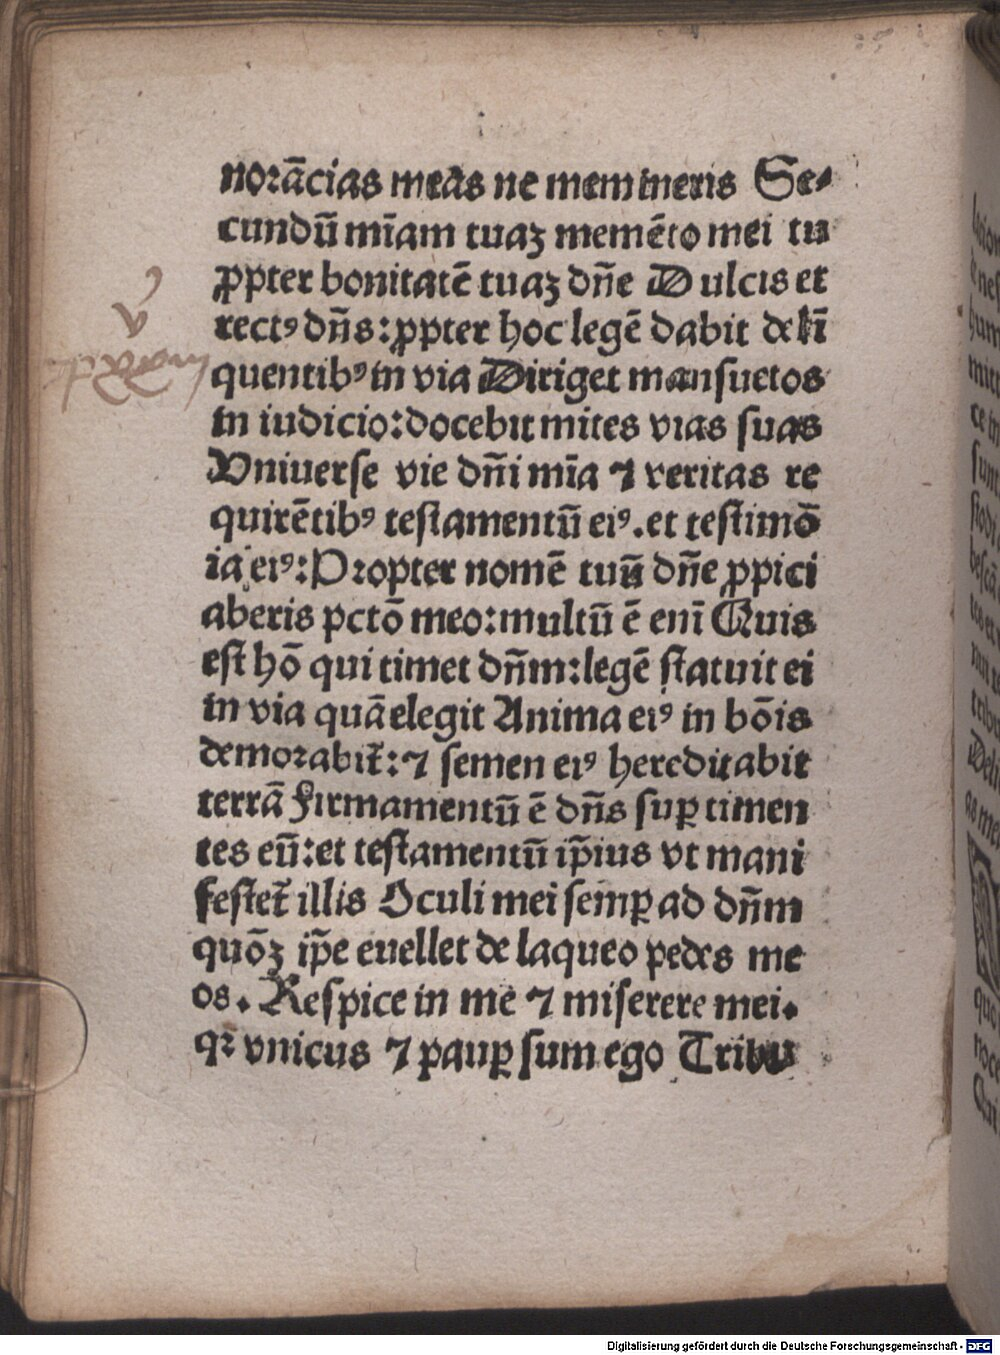 norācias meas ne memineris Se⸗
cundū mīam tuaꝫ memēto mei tu
ꝓpter bonitatē tuaꝫ dn̄e Dulcis et
rectꝰ dn̄s: ꝓpter hoc legē dabit delī
quentibꝰ in via Diriget mansuetos
in iudicio: docebit mites vias suas
Uniuerse vie dn̄i mīa ⁊ veritas re
quirētibꝰ testamentū eiꝰ. et testimō
ia eiꝰ: Propter nomē tuū dn̄e ꝓpici
aberis pctō meo: multū ē enī Quis
est hō qui timet dn̄m: legē statuit ei
in via quā elegit Anima eiꝰ in bōis
demorabit̄: ⁊ semen eiꝰ hereditabit
terrā Firmamentū ē dn̄s suꝑ timen
tes eū: et testamentū ip̄ius vt mani
festet̄ illis Oculi mei semꝑ ad dn̄m
quōꝫ ip̄e euellet de laqueo pedes me
os. Respice in me ⁊ miserere mei.
qꝛ vnicus ⁊ pauꝑ sum ego Tribu
Digitalisierung gefördert durch die Deutsche Forschungsgemeinschaft - DFG